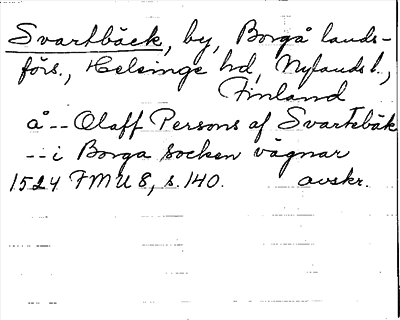 Svartbäck, by, Borgå lands-
förs., Helsinge hd, Nylands l.,
Finland
å -- Olaff Persons af Svartebäk
-- i Borga socken vägnar
1524 FMU 8, s. 140. avskr.